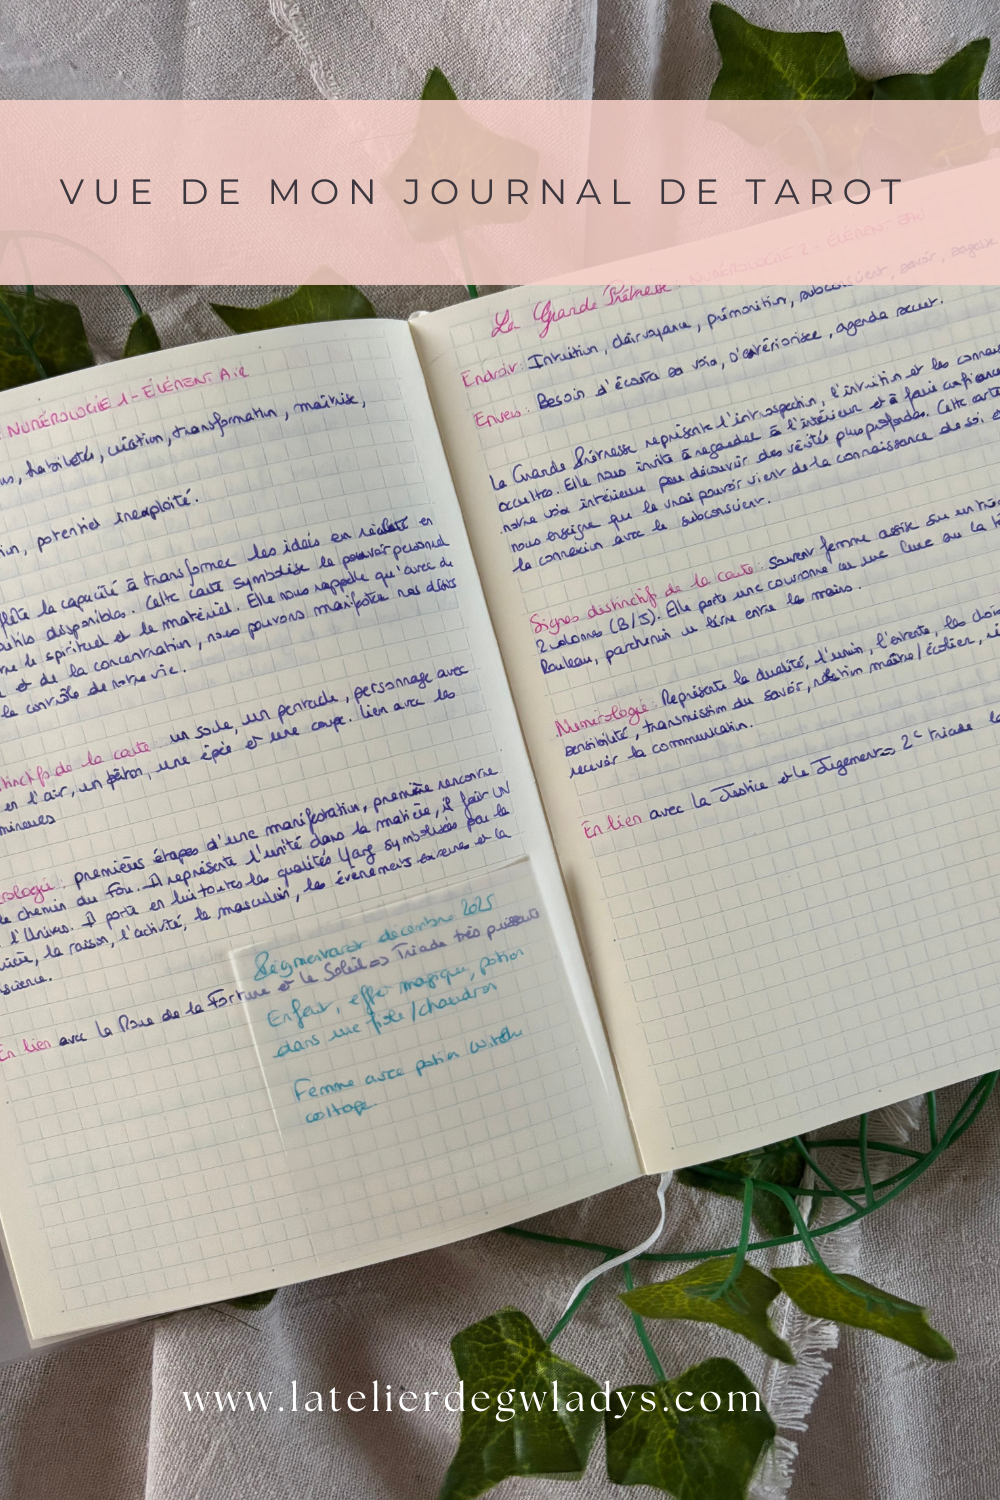 VUE DE MON JOURNAL DE TAROT
NUMÉROLOGIE 1 - ÉLÉMENT Air
habiletés, création, transformation, maîtrise,
potentiel inexploité.
la capacité à transformer les idées en réalité en
outils disponibles. Cette carte symbolise le pouvoir personnel
le spirituel et le matériel. Elle nous rappelle qu'avec de
et de la concentration, nous pouvons manifester nos désirs
le contrôle de notre vie.
de la carte : un socle, un pentacle, personnage avec
en l'air, un bâton, une épée et une coupe. Lien avec les
mineures
premières étapes d'une manifestation, première rencontre
le chemin du Fou. Il représente l'unité dans la matière, il fait UN
l'Univers. Il porte en lui toutes les qualités Yang symbolisées par la
la raison, l'activité, le masculin, les événements externes et la
science.
En lien avec la Roue de la Fortune et le Soleil => Triade très puissante
décembre 2025
Enfant, effet magique, potion
dans une fiole/chaudron
Femme avec potion witch
cottage
La Grande Prêtresse - NUMÉROLOGIE 2 - ÉLÉMENT EAU
Endroit : Intuition, clairvoyance, prémonition, subconscient, savoir, sagesse
Envers : Besoin d'écouter sa voix, s'extérioriser, agenda secret.
La Grande Prêtresse représente l'introspection, l'intuition et les
occultes. Elle nous invite à regarder à l'intérieur et à faire confiance
notre voix intérieure pour découvrir des vérités plus profondes. Cette carte
nous enseigne que le vrai pouvoir vient de la connaissance de soi et
la connexion avec le subconscient.
Signes distinctifs de la carte : souvent femme assise sur un
2 colonnes (B/J). Elle porte une couronne ou une lune ou la
Rouleau, parchemin ou livre entre les mains.
Numérologie : Représente la dualité, l'union, l'attente, les
sensibilité, transmission du savoir, relation maître/écolier,
recevoir la communication.
En lien avec la Justice et le Jugement => 2e triade
www.latelierdegwladys.com